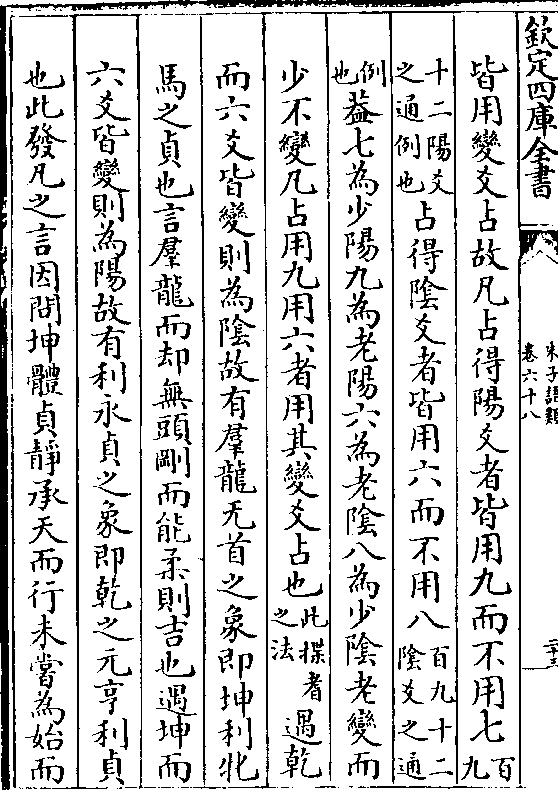 欽定四庫全書
朱子語類
卷六十八
皆用變爻占故凡占得陽爻者皆用九而不用七百九
十二陽爻之通例也占得陰爻者皆用六而不用八百九十二陰爻之通
例也葢七為少陽九為老陽六為老陰八為少陰老變而
少不變凡占用九用六者用其變爻占也此揲蓍之法遇乾
而六爻皆變則為陰故有羣龍无首之象即坤利牝
馬之貞也言羣龍而却無頭剛而能柔則吉也遇坤而
六爻皆變則為陽故有利永貞之象即乾之元亨利貞
也此發凡之言因問坤體貞靜承天而行未嘗為始而